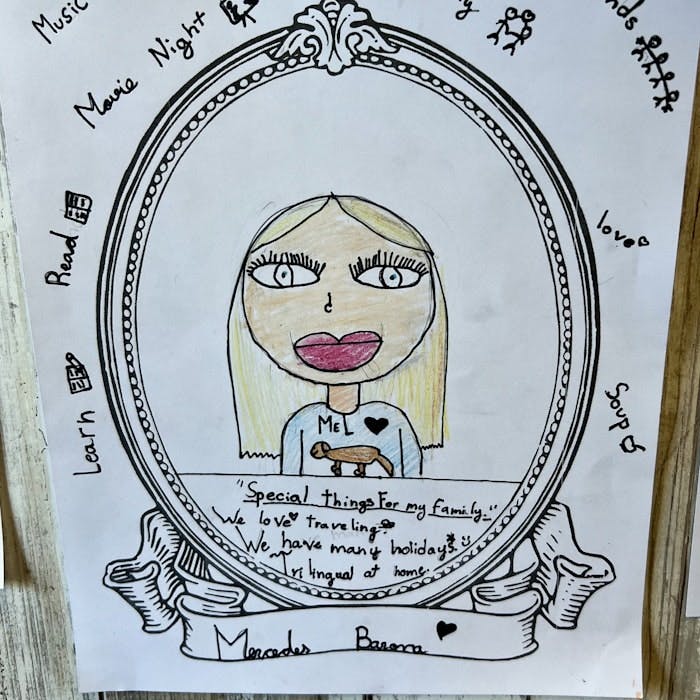 Music
Movie Night
Read
Learn
love
Soup
MEL
"Special things For my family"
We love traveling
We have many holidays
Trilingual at home.
Mercedes Barona